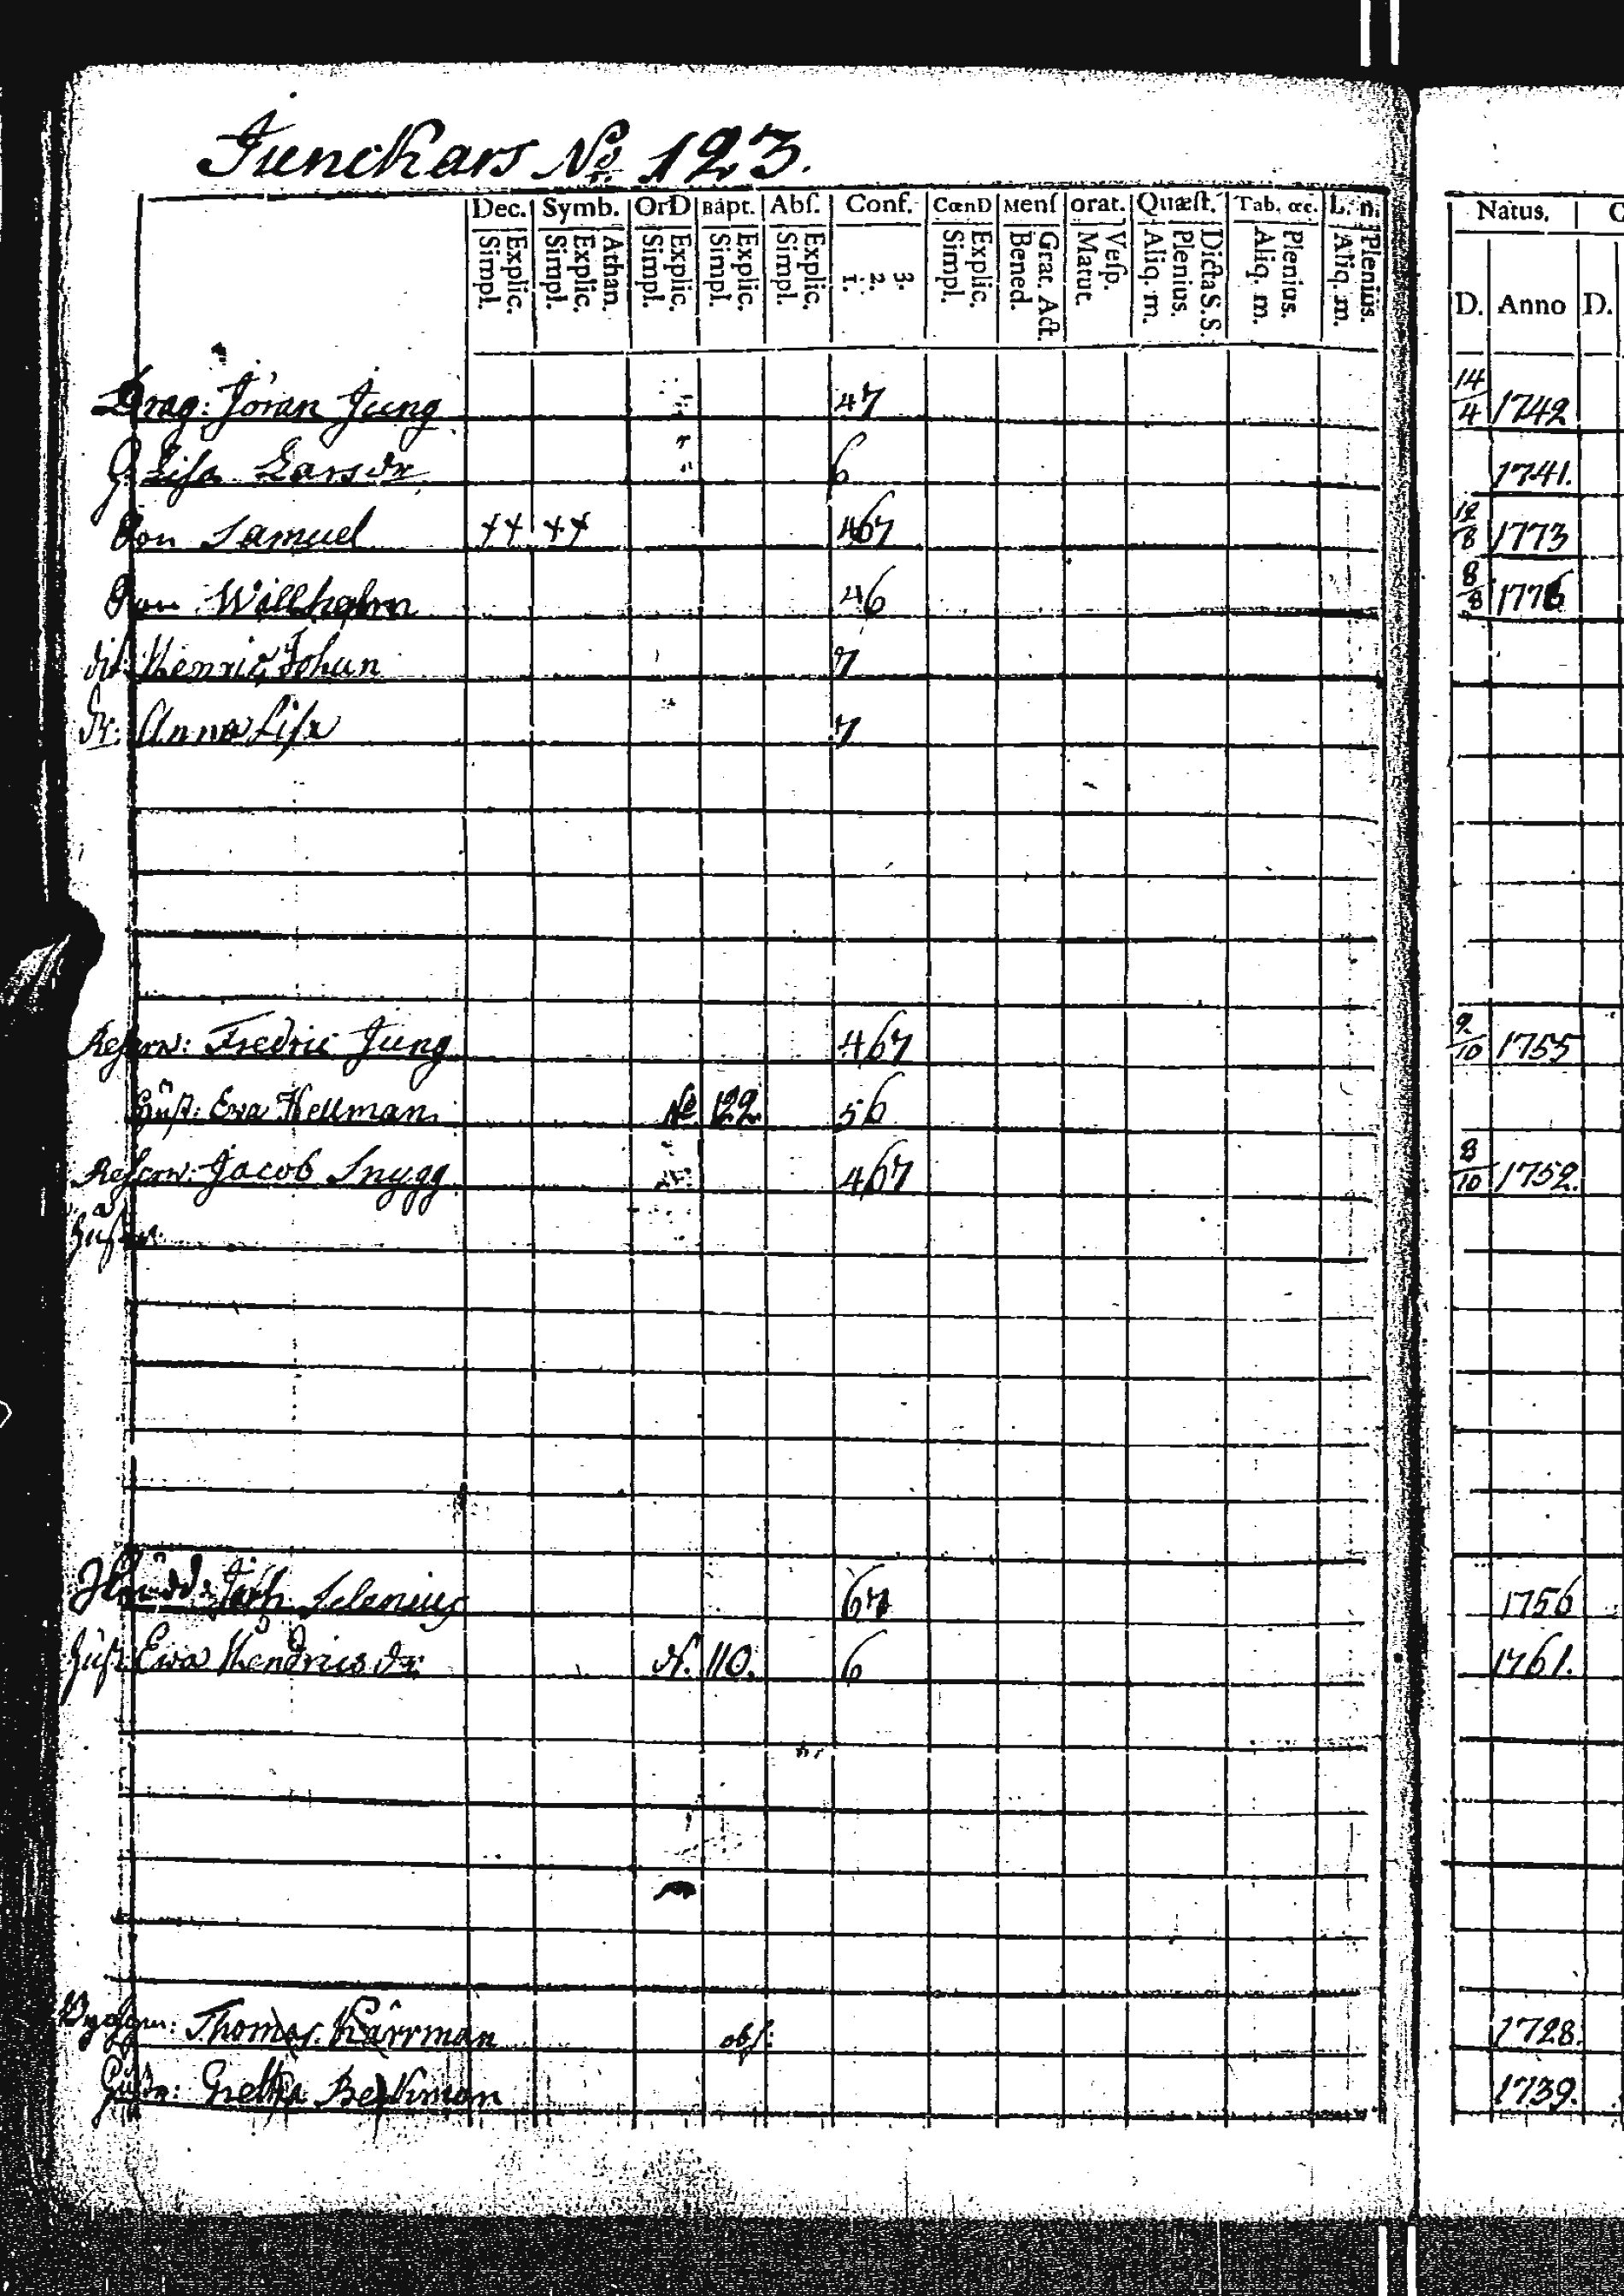 Junckars No. 123.
Dec. Symb. OrD Bapt. Abſ. Conf. CœnD Menſ orat. Quæſt. Tab. œc. L. n. Natus.
Explic. Simpl. Athan. Explic. Simpl. Explic. Simpl. Explic. Simpl. Explic. Simpl. 3. 2. 1. Explic. Simpl. Grat. Act. Bened. Veſp. Matut. Dicta S. S. Plenius. Aliq. m. Plenius. Aliq. m. Plenius. Aliq. m. D. Anno D.
Drag: Jöran Jung 47 14/4 1742
H. Lisa Larsdr 6 1741.
Son Samuel ++ ++ 467 12/8 1773
Son Willhelm 46 8/8 1776
dit. Henric Johan 7
Dr: Anna Lisa 7
Reserv: Fredric Jung 467 9/10 1755
Hust: Eva Hellman No 122 56
Reserv: Jacob Snygg 467 8/10 1752.
Hustr
Joh. Selenius 67 1756
Hust: Ewa Hendricsdr N. 110. 6 1761.
Thomas Kärrman obs: 1728.
Hustr: Gretha Beckman 1739.